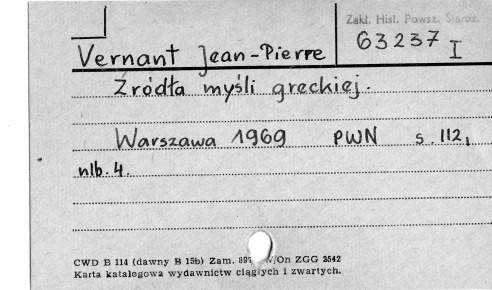 Zakł. Hist. Powsz. Staroż.
63237 I
Vernant Jean-Pierre
Źródła myśli greckiej.
Warszawa 1969 PWN s. 112,
nlb. 4.
CWD B 114 (dawny B 15b) Zam. /On ZGG 2542
Karta katalogowa wydawnictw ciągłych i zwartych.